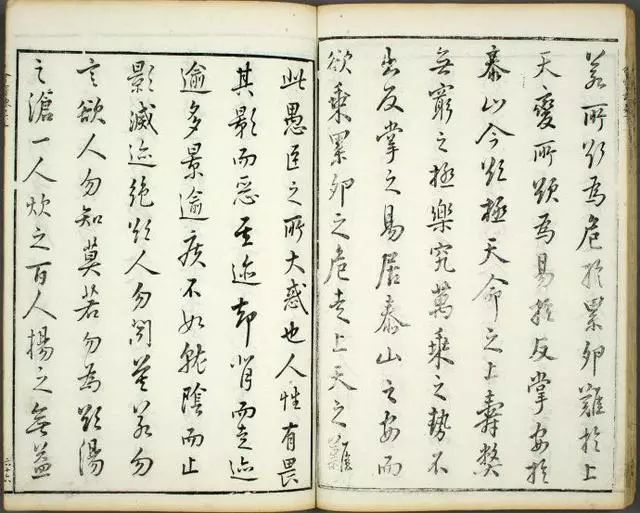 若所欲為危於累卵難於上
天變所欲為易於反掌安於
泰山今欲極天命之上壽弊
無窮之極樂究萬乘之勢不
出反掌之易居泰山之安而
欲乘累卵之危走上天之難
此愚臣之所大惑也人性有畏
其影而惡其迹却背而走迹
逾多景逾疾不如就陰而止
影滅迹絶欲人勿聞莫若勿
言欲人勿知莫若勿為欲湯
之滄一人炊之百人揚之無益